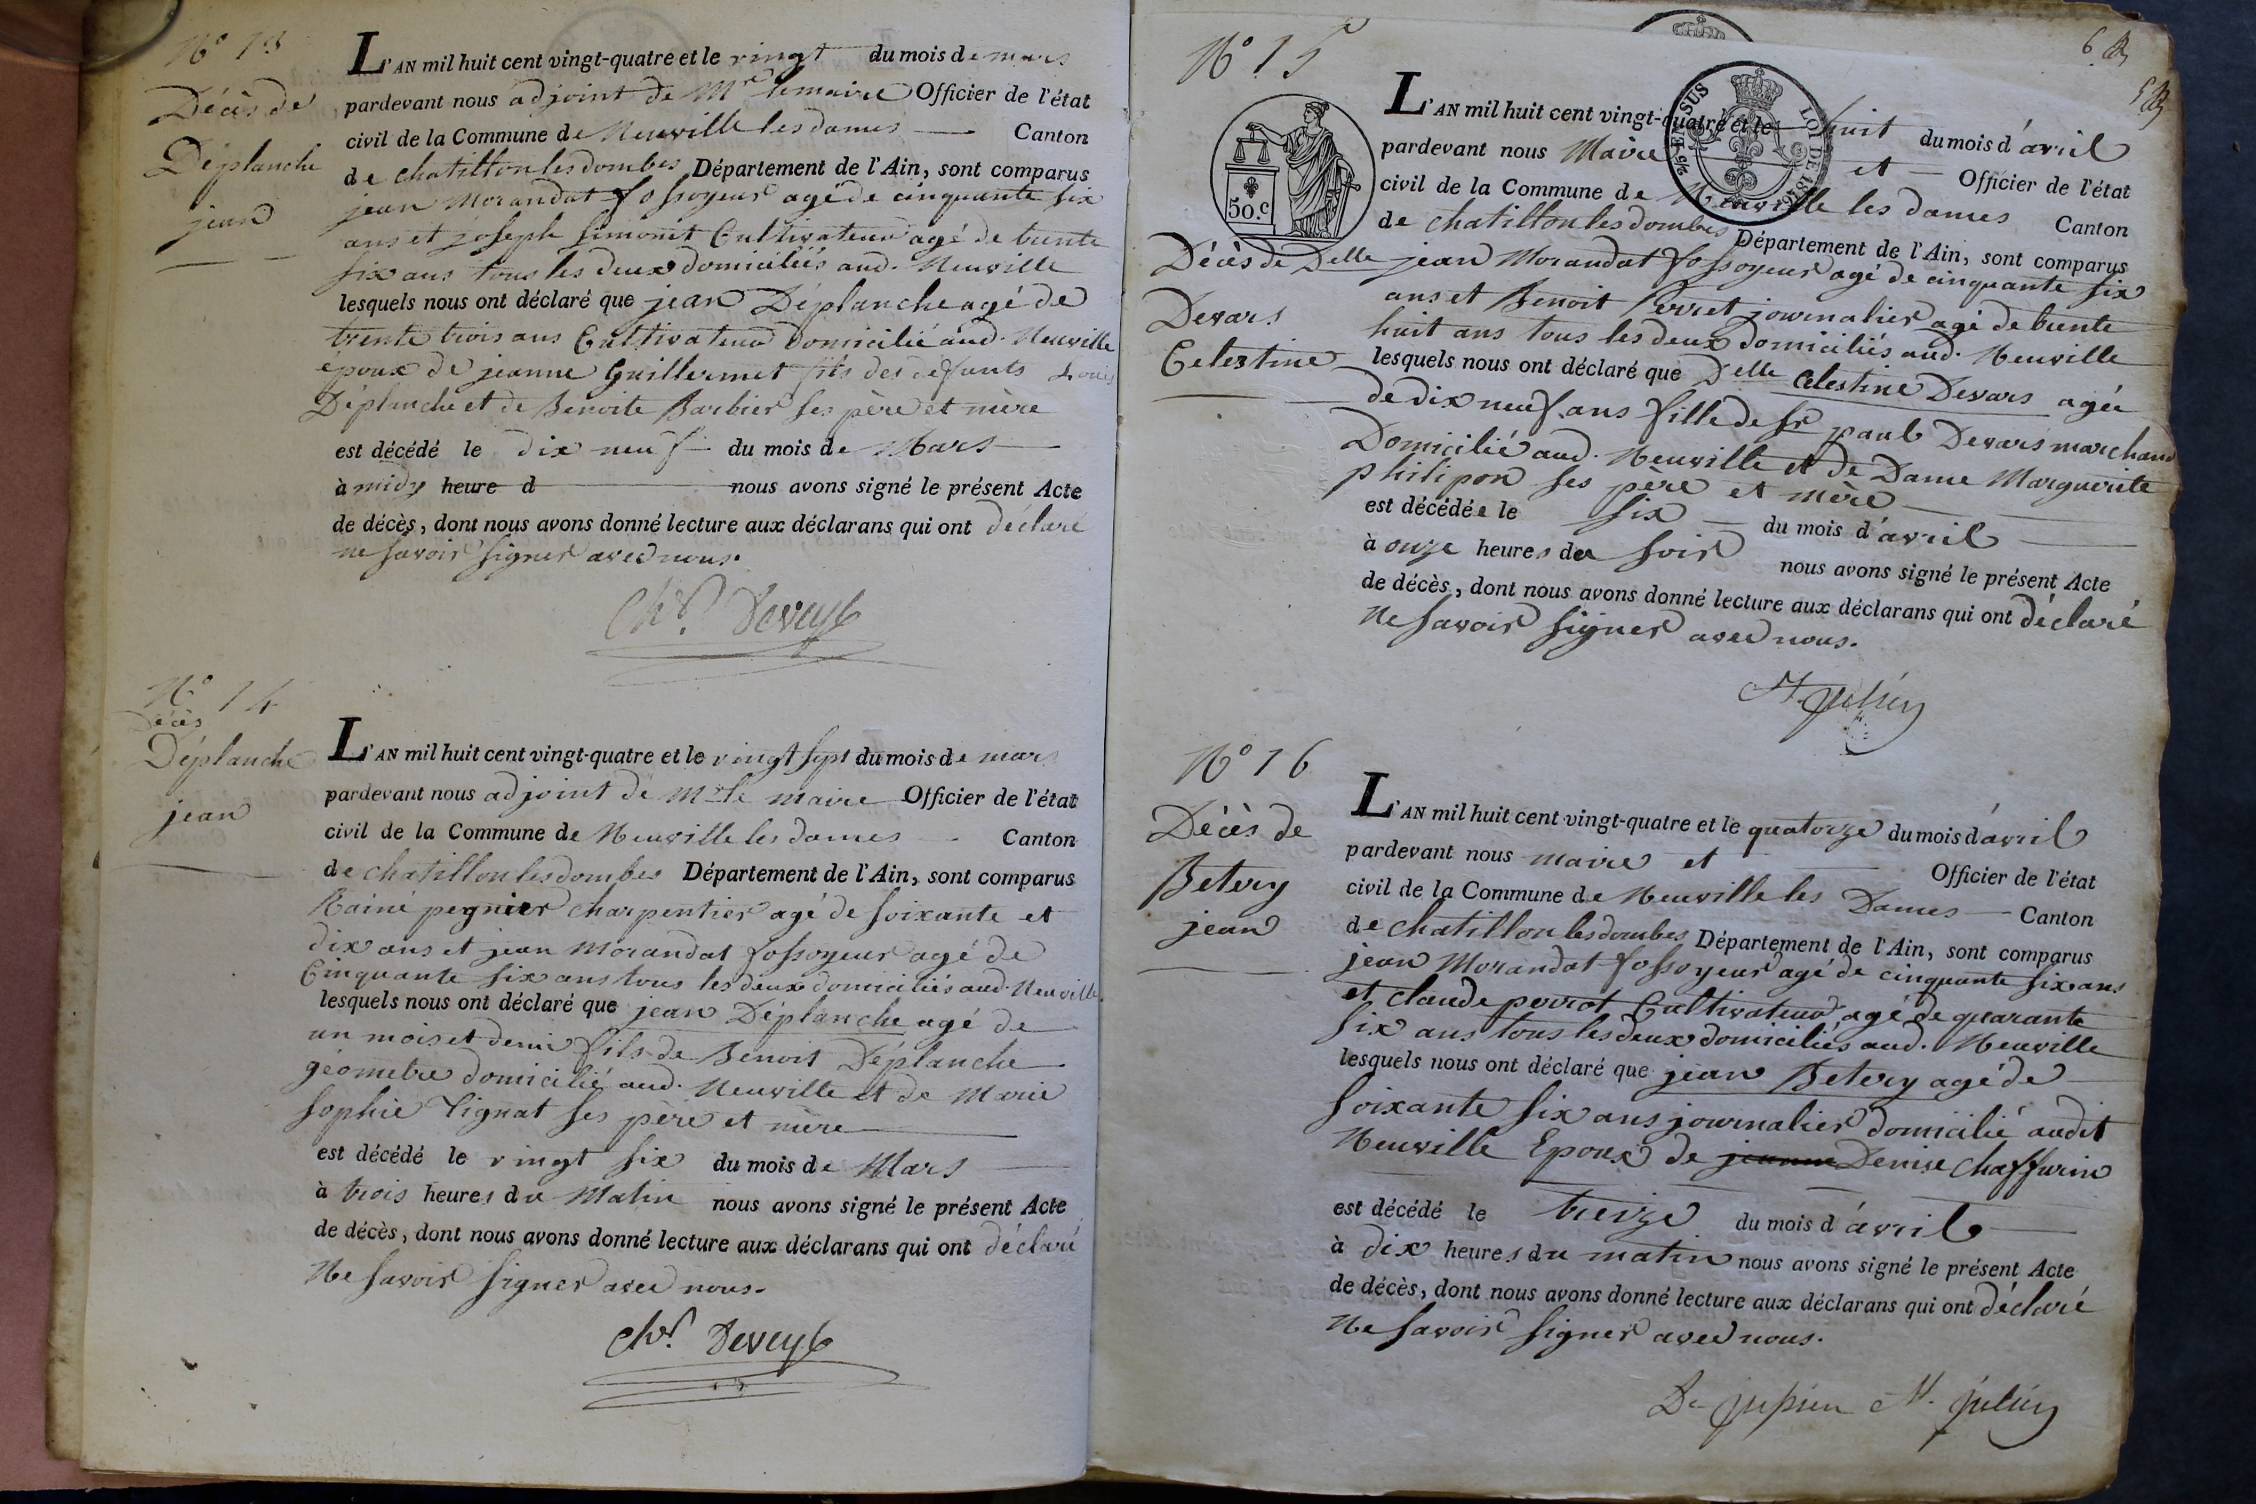 N° 13
Décès de
Déplanche
jean
L'AN mil huit cent vingt-quatre et le vingt du mois de mars
pardevant nous adjoint de Mr lemaire Officier de l'état
civil de la Commune de Neuville les dames Canton
de chatillon les dombes Département de l'Ain, sont comparus
jean Morandat fossoyeur agé de cinquante six
ans et joseph Simonet Cultivateur agé de trente
six ans tous les deux domiciliés aud. Neuville
lesquels nous ont déclaré que jean Déplanche agé de
trente trois ans Cultivateur Domicilié aud. Neuville
époux de jeanne Guillermet fils des défunts Louis
Déplanche et de Benoite Barbier ses père et mère
est décédé le dix neuf du mois de Mars
à midy heure d nous avons signé le présent Acte
de décès, dont nous avons donné lecture aux déclarans qui ont déclaré
ne savoir signer avec nous.
Chr. Deveyle
N° 14
Décès
Déplanche
jean
L'AN mil huit cent vingt-quatre et le vingt sept du mois de mars
pardevant nous adjoint de Mr le maire Officier de l'état
civil de la Commune de Neuville les dames Canton
de chatillon les dombes Département de l'Ain, sont comparus
Rainé pegnier charpentier agé de soixante et
dix ans et jean Morandat fossoyeur agé de
Cinquante six ans tous les deux domiciliés aud. Neuville
lesquels nous ont déclaré que jean Déplanche agé de
un mois et demi fils de Benoit Déplanche
géometre domicilié aud. Neuville et de Marie
sophie Tignat ses père et mère
est décédé le vingt six du mois de Mars
à trois heures du Matin nous avons signé le présent Acte
de décès, dont nous avons donné lecture aux déclarans qui ont déclaré
Ne savoir signer avec nous.
Chr. Deveyle
6
5
N° 15
50.c
2/5 EN SUS LOI DE 1816
Décès de Delle
Devars
Celestine
L'AN mil huit cent vingt-quatre et le huit du mois d'avril
pardevant nous Maire et Officier de l'état
civil de la Commune de Neuville les dames Canton
de chatillon les dombes Département de l'Ain, sont comparus
jean Morandat fossoyeur agé de cinquante six
ans et Benoit Perret journalier agé de trente
huit ans tous les deux domiciliés aud. Neuville
lesquels nous ont déclaré que Delle Celestine Devars agée
de dix neuf ans fille de sr paul Devars marchand
Domicilié aud. Neuville et de Dame Marguerite
philipon ses père et mère
est décédée le six du mois d'avril
à onze heures du soir nous avons signé le présent Acte
de décès, dont nous avons donné lecture aux déclarans qui ont déclaré
Ne savoir signer avec nous.
N° 16
Décès de
Betery
jean
L'AN mil huit cent vingt-quatre et le quatorze du mois d'avril
pardevant nous maire et Officier de l'état
civil de la Commune de Neuville les Dames Canton
de chatillon les dombes Département de l'Ain, sont comparus
jean Morandat fossoyeur agé de cinquante six ans
et claude perrot Cultivateur agé de quarante
six ans tous les deux domiciliés aud. Neuville
lesquels nous ont déclaré que jean Betery agé de
soixante six ans journalier domicilié audit
Neuville Epoux de jeanne Denise Chaffurin
est décédé le treize du mois d'avril
à dix heures du matin nous avons signé le présent Acte
de décès, dont nous avons donné lecture aux déclarans qui ont déclaré
Ne savoir signer avec nous.